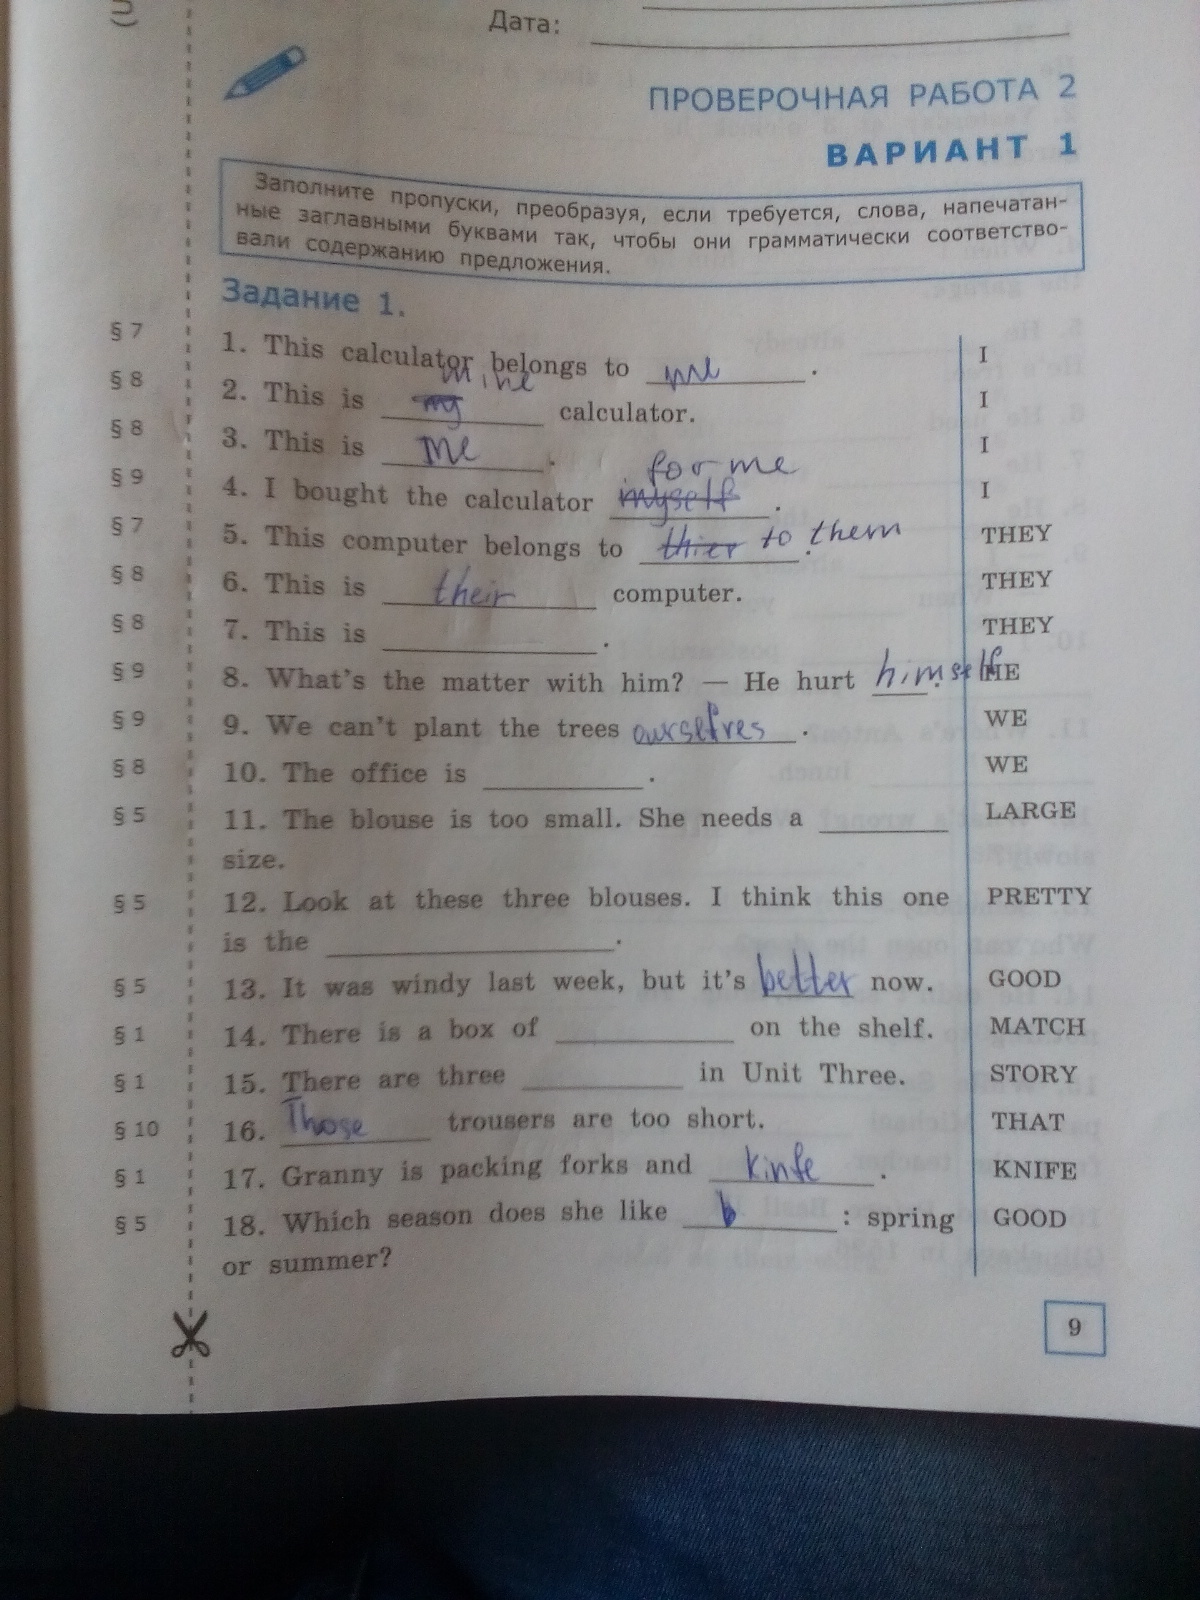 Дата:
ПРОВЕРОЧНАЯ РАБОТА 2
ВАРИАНТ 1
Заполните пропуски, преобразуя, если требуется, слова, напечатан-
ные заглавными буквами так, чтобы они грамматически соответство-
вали содержанию предложения.
Задание 1.
§ 7 1. This calculator belongs to me. I
mine
§ 8 2. This is my calculator. I
§ 8 3. This is me. I
for me
§ 9 4. I bought the calculator myself. I
§ 7 5. This computer belongs to thier to them. THEY
§ 8 6. This is their computer. THEY
§ 8 7. This is ______. THEY
§ 9 8. What's the matter with him? — He hurt himself. HE
§ 9 9. We can't plant the trees ourselves. WE
§ 8 10. The office is ______. WE
§ 5 11. The blouse is too small. She needs a ______ LARGE
size.
§ 5 12. Look at these three blouses. I think this one PRETTY
is the ______.
§ 5 13. It was windy last week, but it's better now. GOOD
§ 1 14. There is a box of ______ on the shelf. MATCH
§ 1 15. There are three ______ in Unit Three. STORY
§ 10 16. Those trousers are too short. THAT
§ 1 17. Granny is packing forks and kinfe. KNIFE
§ 5 18. Which season does she like b: spring GOOD
or summer?
9